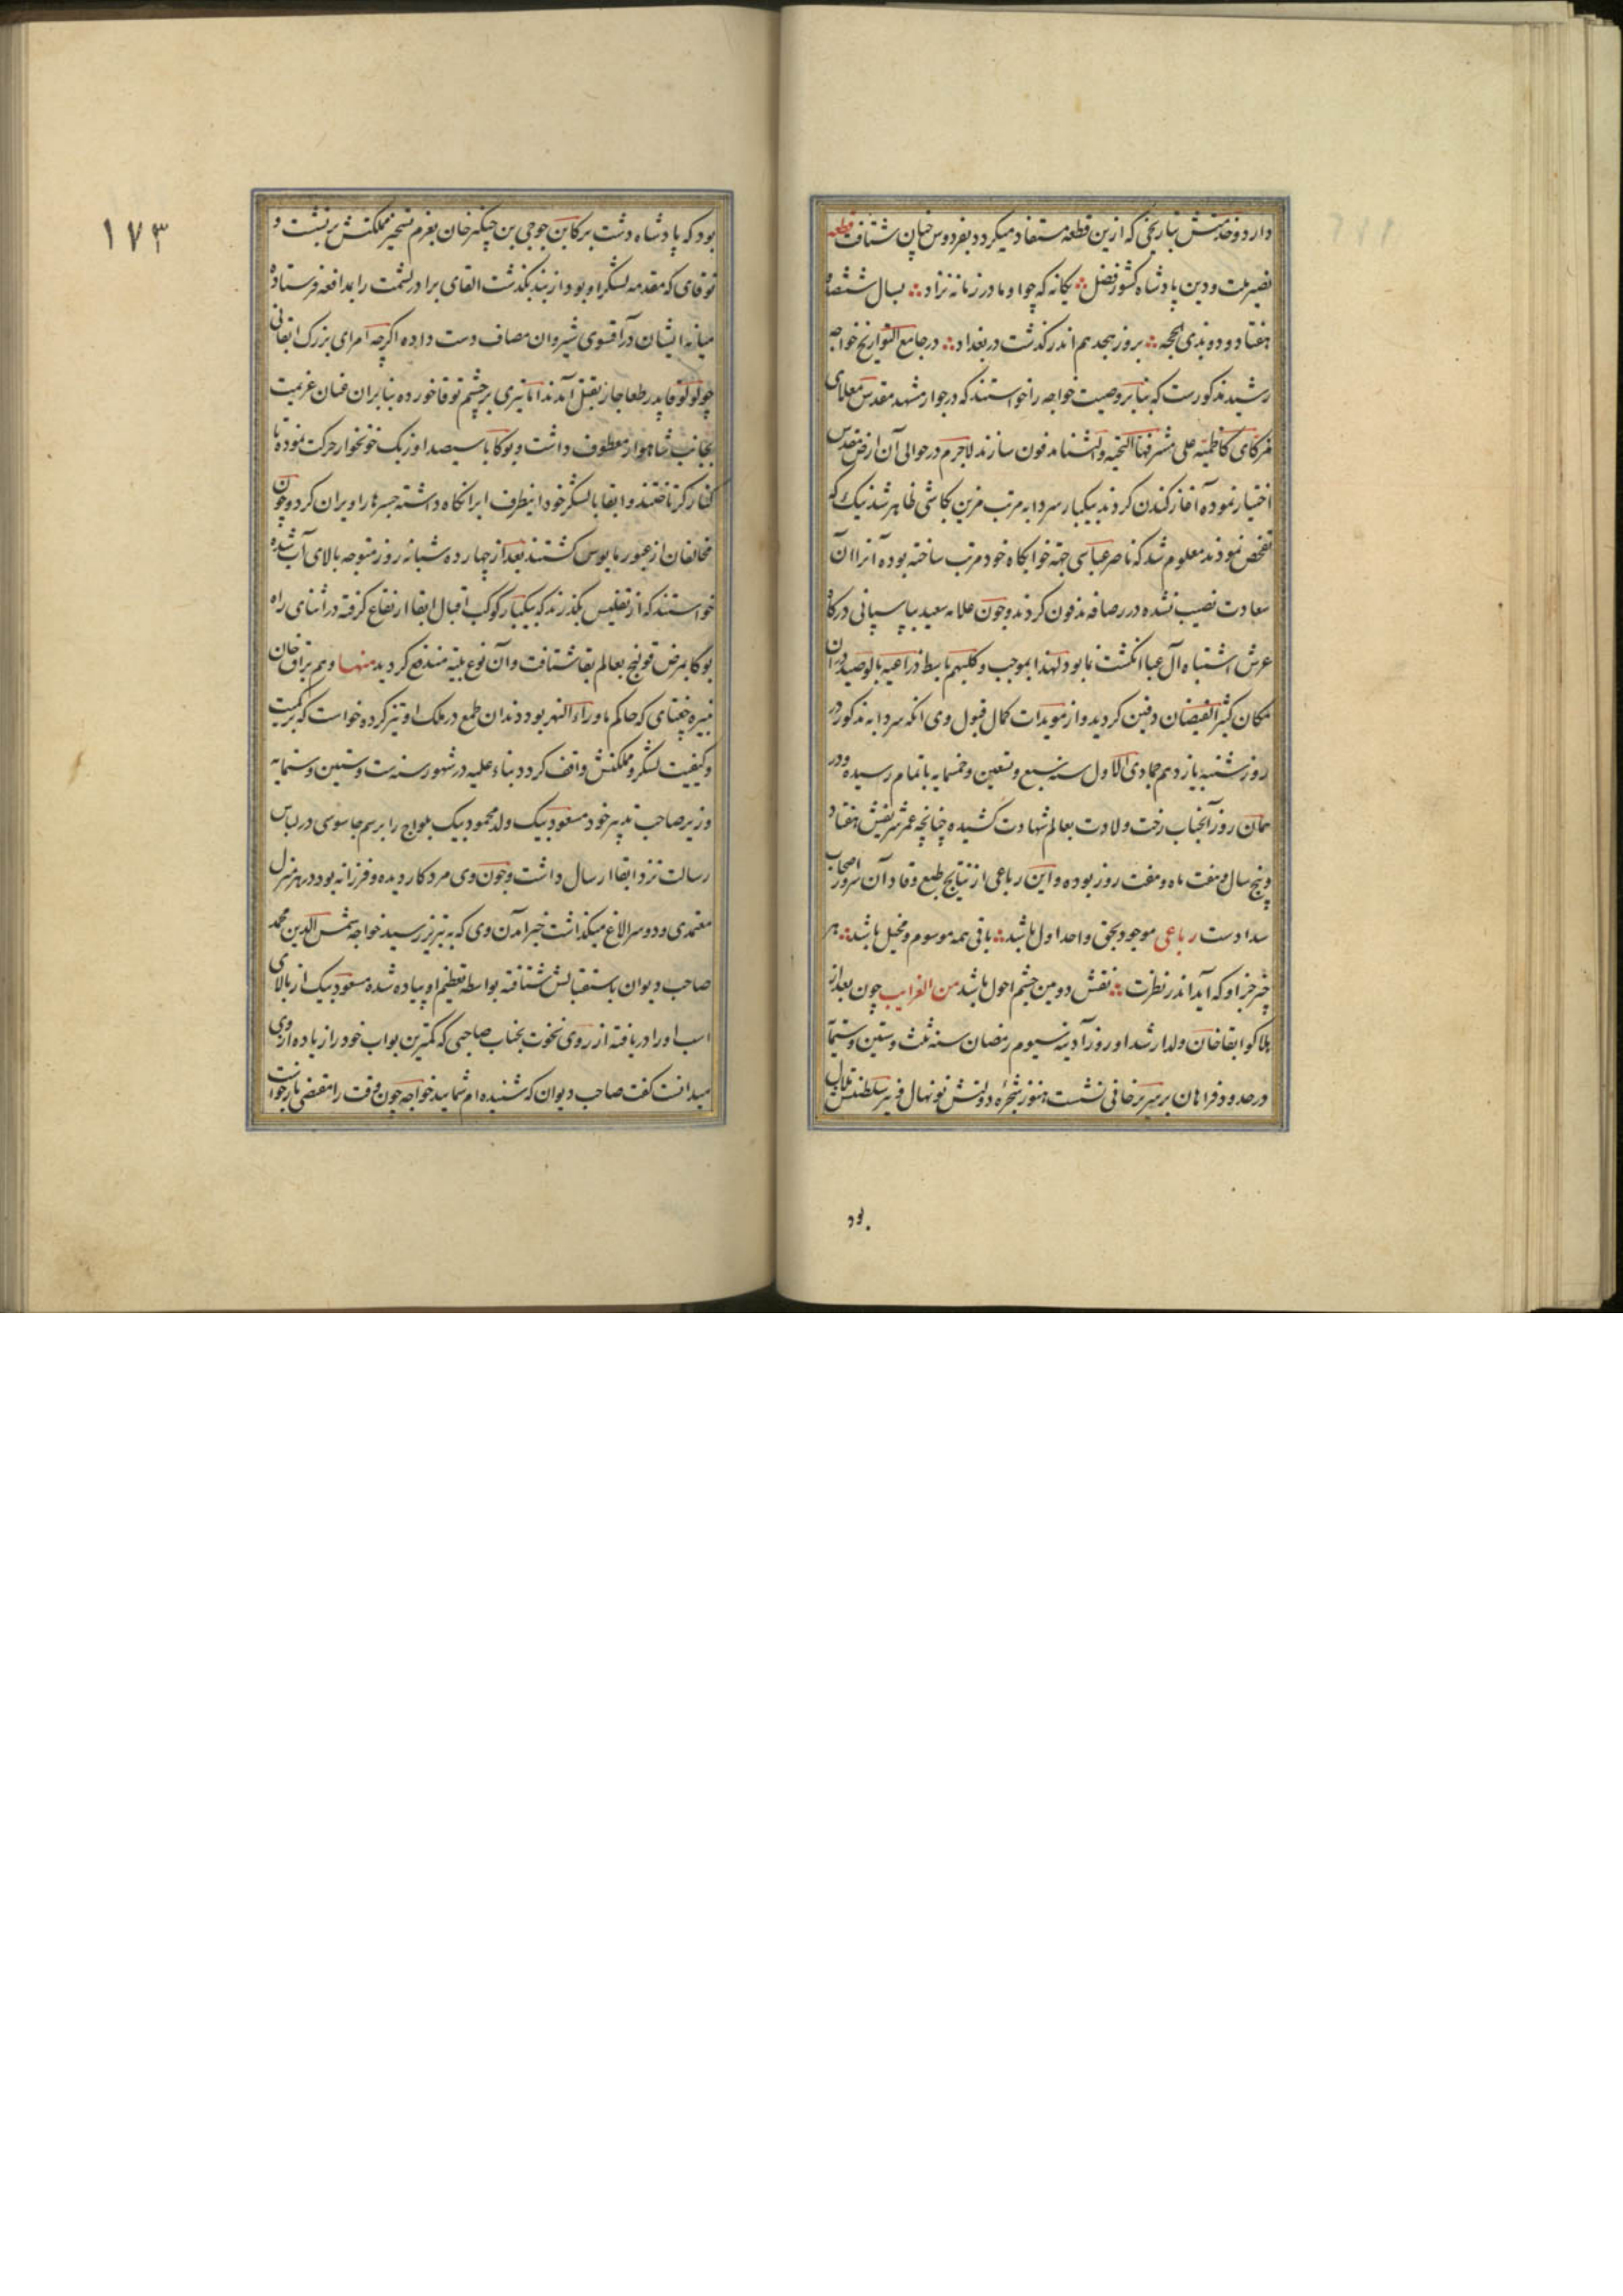 دارد و خدمتش بتاریخی که ازین قطعه مستفاد میکردد بفردوس جنان شتافت قطعه
نصیر ملت و دین پادشاه کشور فضل یکانه که چو او مادر زمانه نزاد بسال ششصد و
هفتاد و دو بذی الحجه بروز هجدهم اندر کذشت در بغداد در جامع التواریخ خواجه
رشید مذکورست که بنا بر وصیت خواجه را خواستند که در جوار مشهد مقدس معلای
کاظمیه علی مشرفها التحیه والثنا مدفون سازند لاجرم در حوالی آن ارض مقدس
اختیار نموده آغاز کندن کردند بیکبار سردابه مرتب مزین بکاشی ظاهر شد نیک که
تفحص نمودند معلوم شد که ناصر عباسی جهة خوابکاه خود مرتب ساخته بوده آنرا آن
سعادت نصیب نشده در رصافه مدفون کردند و چون علامه سعید بپاسبانی درکاه
عرش اشتباه آل عبا انکشت نما بود لهذا بموجب وکلبهم باسط ذراعیه بالوصید در آن
مکان کثیر الفیضان دفین کردید و از مویدات کمال قبول وی انکه سردابه مذکور در
روز شنبه یازدهم جمادی الاول سنه سبع و تسعین و خمسمایه باتمام رسیده و در
همان روز آنجناب رخت ولادت بعالم شهادت کشیده چنانچه عمر شریفش هفتاد
و پنج سال و هفت ماه و هفت روز بوده و این رباعی از نتایج طبع وقاد آن سرور اصحاب
سدادست رباعی موجود بحق واحد اول باشد باقی همه موسوم و مخیل باشد هر
چیز جز او که آید اندر نظرت نقش دومین چشم احول باشد من الغرایب چون بعد از
هلاکو ابقاخان ولد ارشد او روز آدینه سیوم رمضان سنه ثلث و ستین و ستمایه
در حدود فراهان بر سریر خانی نشست هنوز شجره دولتش نونهال و نیر سلطنتش هلال
بود
١٧٣
بود که پادشاه دشت برکا بن جوجی بن چنکیز خان بعزم تسخیر مملکتش بر نشست و
نوقای که مقدمه لشکر او بود از بند بکذشت ابقای برادر یشمت را بمدافعه فرستاده
میانه ایشان در آقسوی شیروان مصاف دست داده اکرچه امرای بزرک ابقائی
چو پدر طغاجار بقتل آمدند اما تیری بر چشم نوقا خورده بنا بران عنان عزیمت
بجانب معطوف داشت و برکا با سیصد اوزبک خونخوار حرکت نموده تا
کنار کر تاختند و ابقا با لشکر خود اینطرف ابرا نکاه داشته جسرها را ویران کرد و چون
مخالفان از عبور مایوس کشتند بعد از چهارده شبانه روز متوجه بالای آب شده
خواستند که از تفلیس بکذرند که بیکبار کوکب اقبال ابقا ارتفاع کرفته در اثنای راه
برکا بمرض قولنج بعالم بقا شتافت و آن نوع بلیه مندفع کردید منها و هم براق خان
نبیره جغتای که حاکم ماوراء النهر بود دندان طمع در ملک او تیز کرده خواست که بر کمیت
و کیفیت لشکر و مملکتش واقف کردد بناء علیه در شهور سنه ست و ستین و ستمایه
وزیر صاحب تدبیر خود مسعود بیک ولد محمود بیک یلواج را برسم جاسوسی در لباس
رسالت نزد ابقا ارسال داشت و چون وی مرد کار دیده و فرزانه بود در هر منزل
معتمدی و دو سر الاغ میکذاشت خبر آمدن وی که به تبریز رسید خواجه شمس الدین محمد
صاحب دیوان باستقبالش شتافته بواسطه تعظیم او پیاده شده مسعود بیک از بالای
اسب او را دریافته از روی نخوت بجناب صاحبی که کمترین بواب خود را زیاده از وی
میدانست کفت صاحب دیوان که شنیده ام شمایید خواجه چون وقت را مقتضی باز خواست